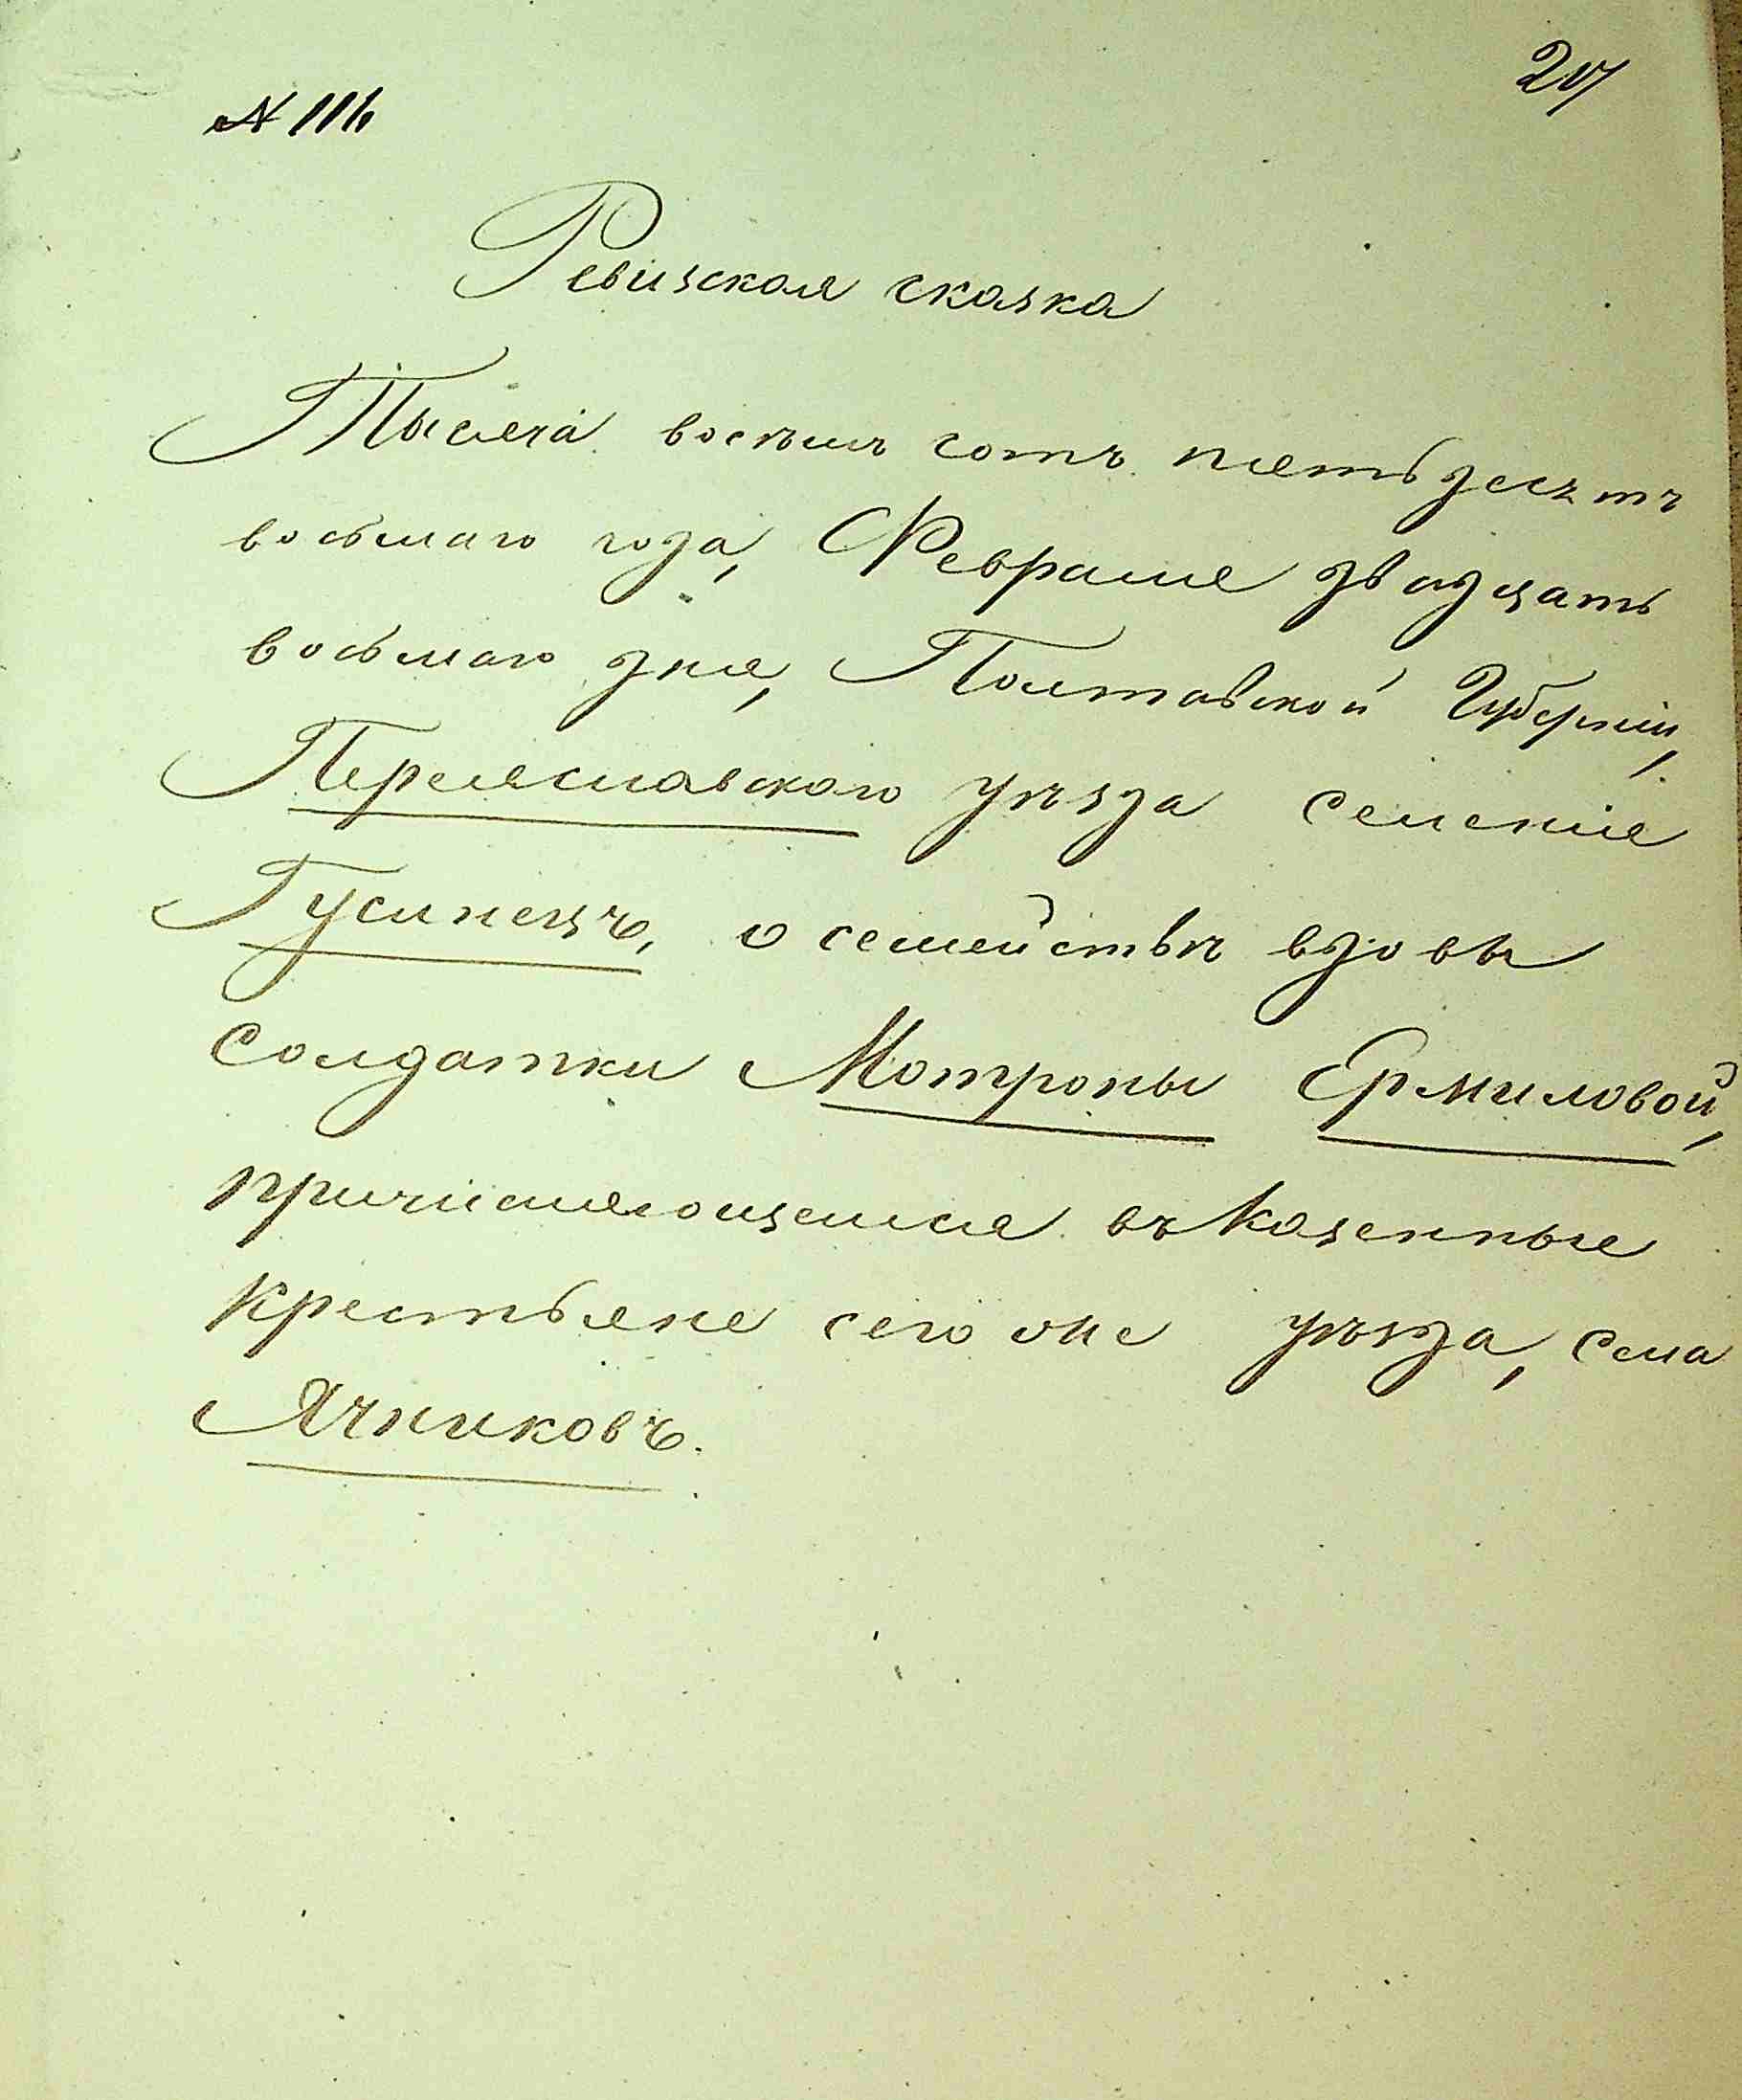 207
№ 116
Ревизская сказка
Тысяча восѣмь сотъ пятьдесятъ
восьмаго года, Февраля двадцать
восьмаго дня, Полтавской Губерніи,
Переяславского уѣзда селенія
Гусинецъ, о семействѣ вдовы
солдатки Мотроны Ермиловой,
причисляющемся въ Казенные
крестьяне сего же уѣзда, села
Ячниковъ.